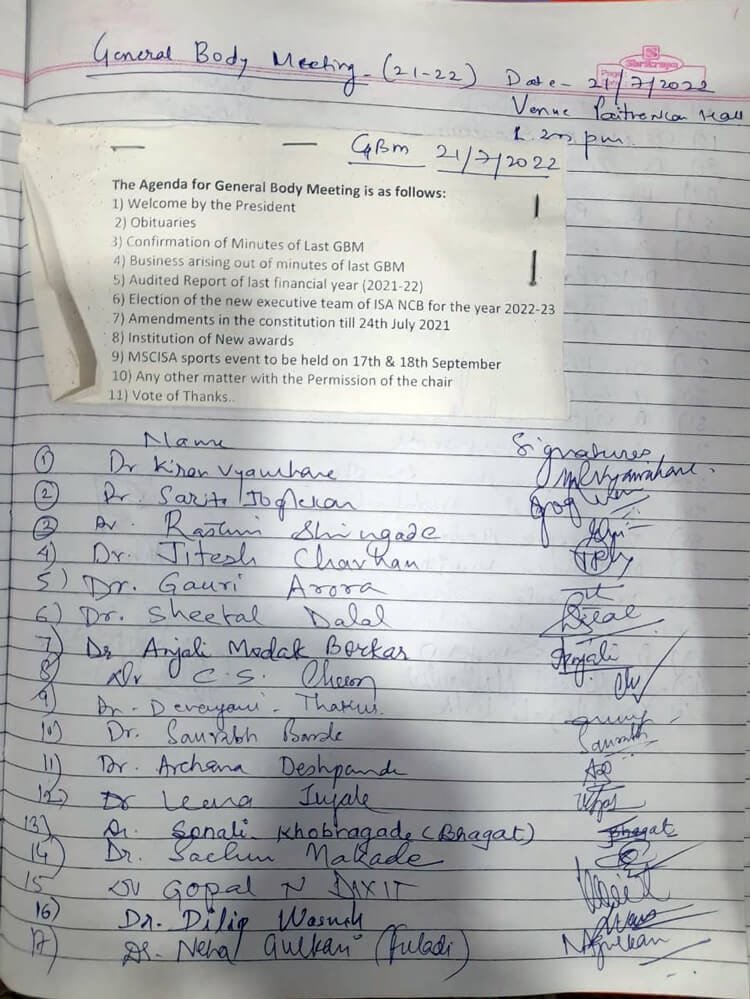 General Body Meeting - (21-22) Date - 21/7/2022
Venue Hall
pm.
GBM 21/7/2022
The Agenda for General Body Meeting is as follows:
1) Welcome by the President
2) Obituaries
3) Confirmation of Minutes of Last GBM
4) Business arising out of minutes of last GBM
5) Audited Report of last financial year (2021-22)
6) Election of the new executive team of ISA NCB for the year 2022-23
7) Amendments in the constitution till 24th July 2021
8) Institution of New awards
9) MSCISA sports event to be held on 17th & 18th September
10) Any other matter with the Permission of the chair
11) Vote of Thanks..
Name Signatures
① Dr Kiran Vyawhare
② Dr. Sarita
③ Dr. Rashmi Shingade
4) Dr. Jitesh Chavhan
5) Dr. Gauri Arora
6) Dr. Sheetal Dalal
7) Dr Anjali Modak Borkar Anjali
8 Dr C.S.
9) Dr. Devayani Thakur
10) Dr. Saurabh Barde Saurabh
11) Dr. Archana Deshpande
12) Dr Leena
13) Dr. Sonali Khobragade (Bhagat) Bhagat
14) Dr. Sachin Makade
15 Dr Gopal N DIXIT
16) Dr. Dilip Wasnik
17) Dr. Neha Gulkari (Fuladi)